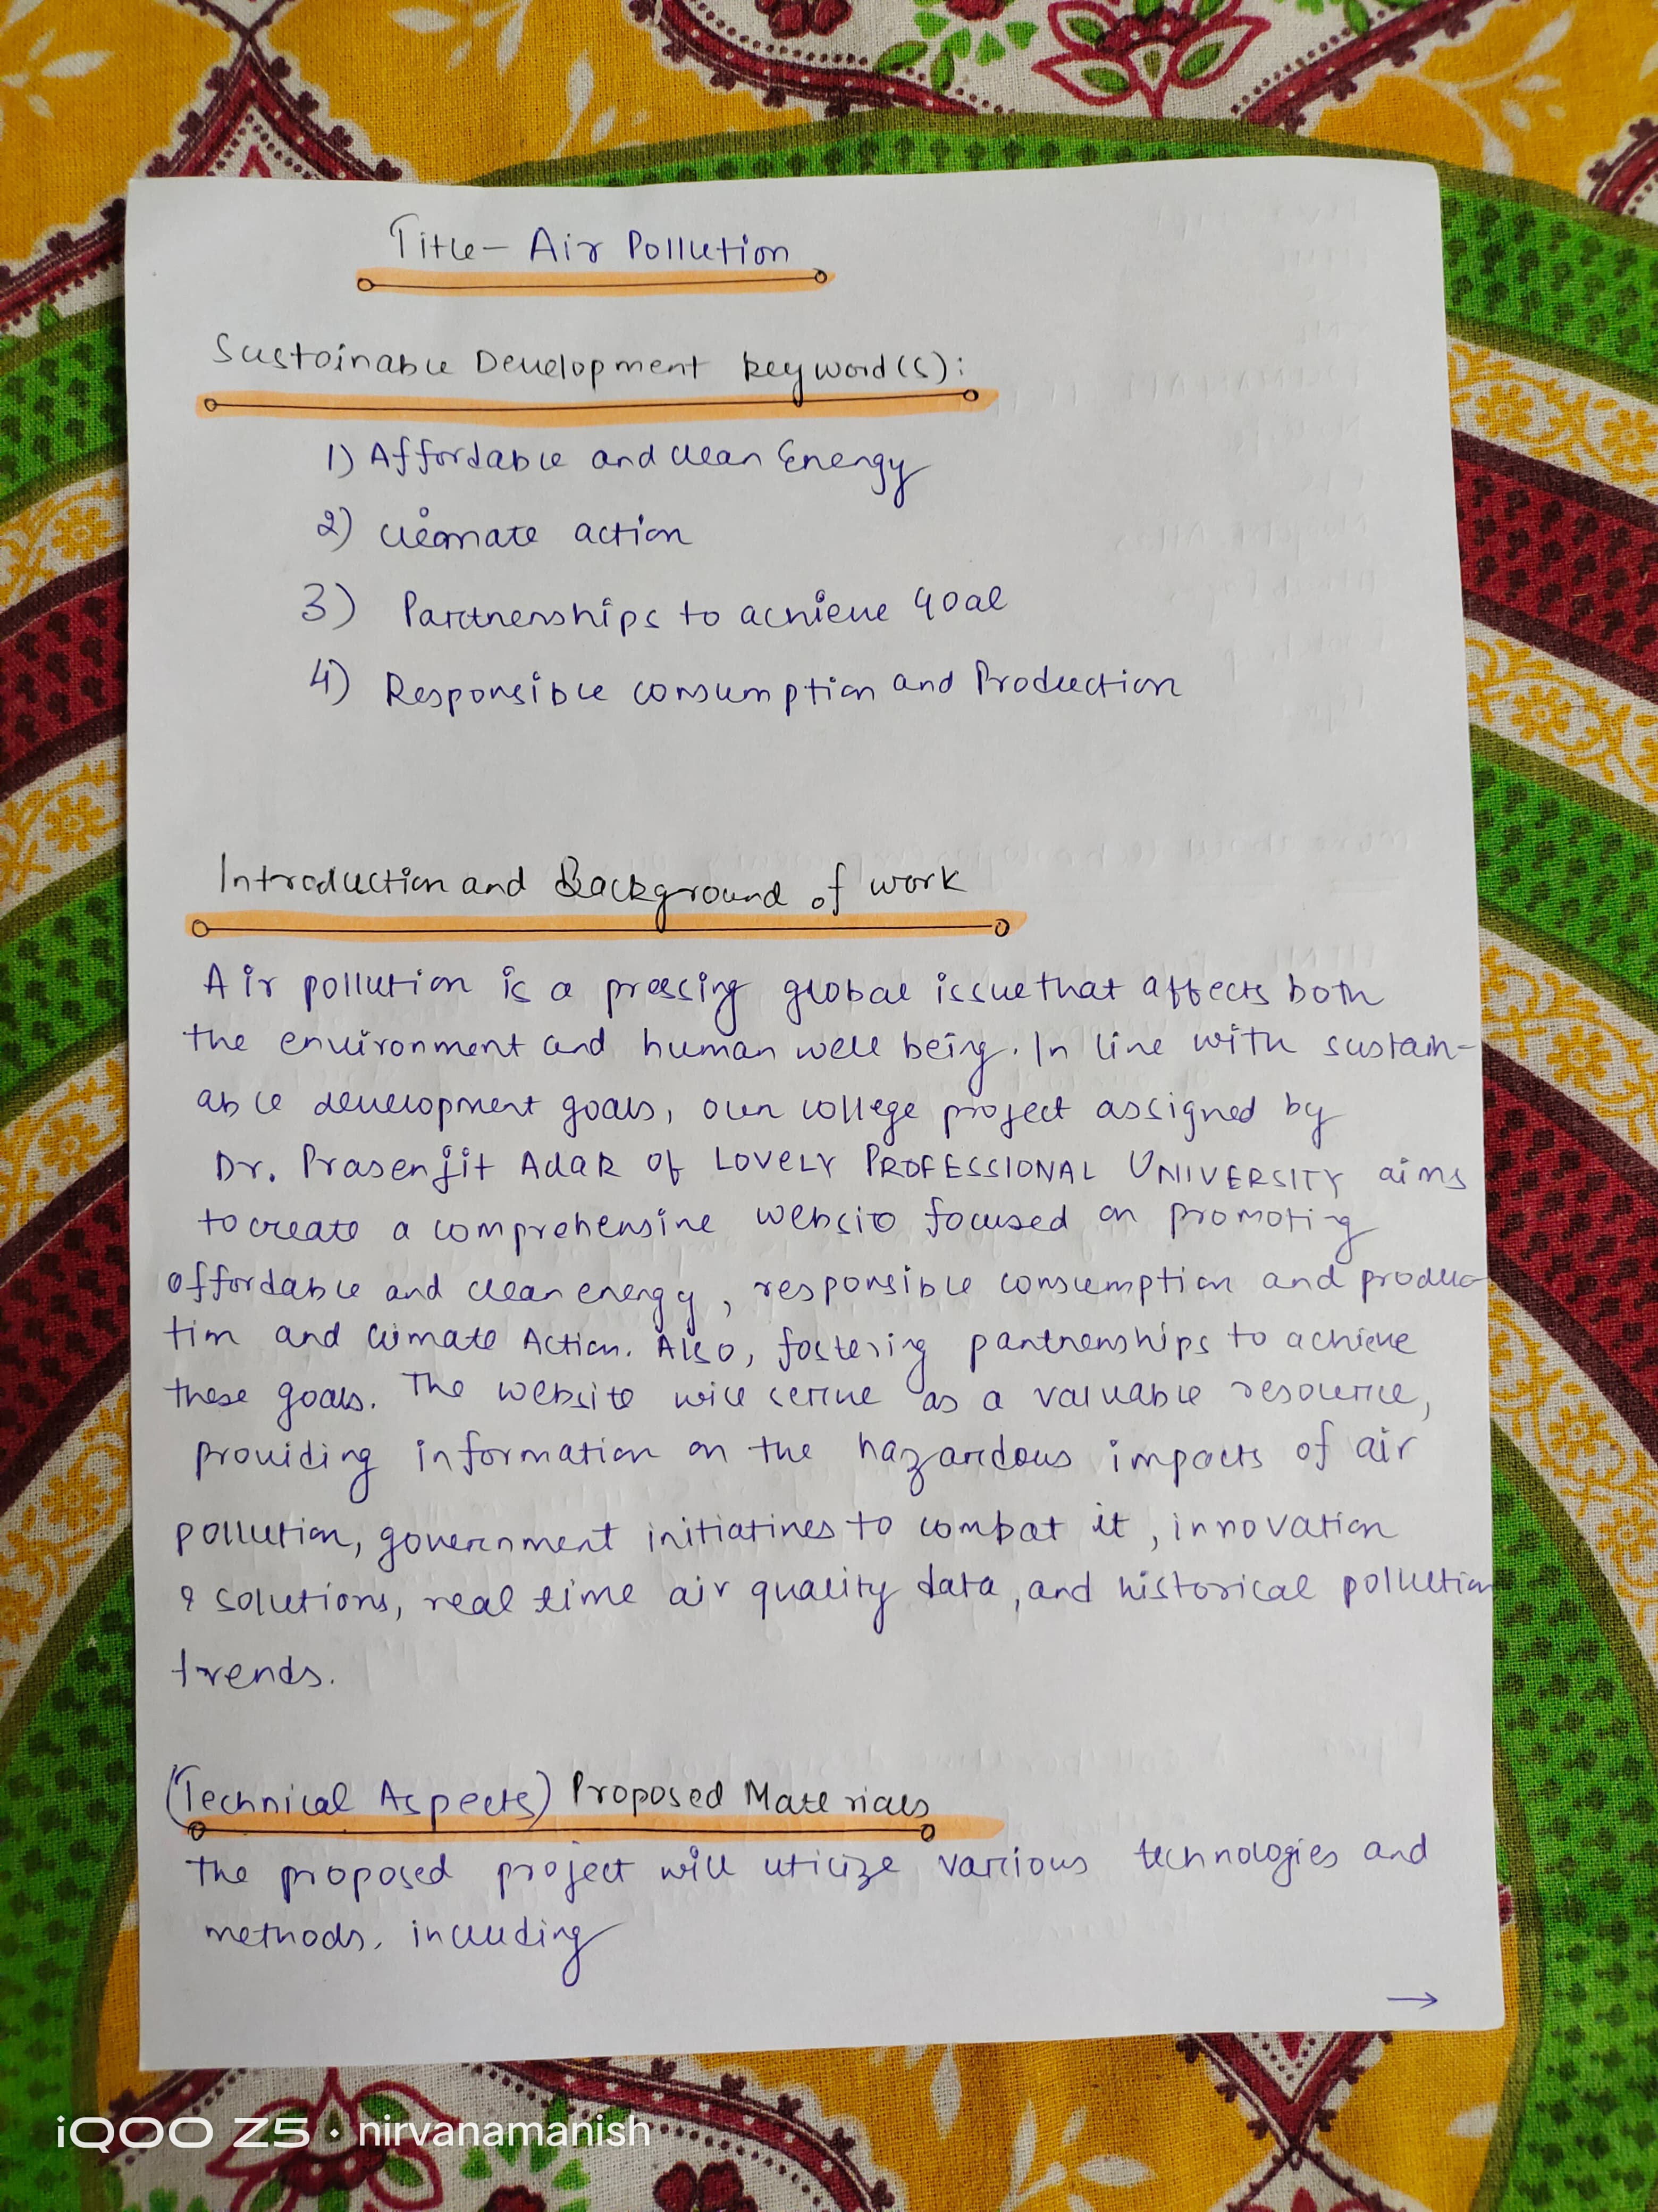 Title - Air Pollution
Sustainable Development keyword(s):
1) Affordable and clean Energy
2) climate action
3) Partnerships to achieve goal
4) Responsible consumption and Production
Introduction and Background of work
Air pollution is a pressing global issue that affects both
the environment and human well being. In line with sustain-
able development goals, our college project assigned by
Dr. Prasenjit Adak Of LOVELY PROFESSIONAL UNIVERSITY aims
to create a comprehensive website focused on promoting
affordable and clean energy, responsible consumption and produc
tion and climate Action. Also, fostering partnerships to achieve
these goals. The website will serve as a valuable resource,
providing information on the hazardous impacts of air
pollution, government initiatives to combat it, innovation
& solutions, real time air quality data, and historical pollution
trends.
(Technical Aspects) Proposed Materials
The proposed project will utilize various technologies and
methods, including
→
iQOO Z5 · nirvanamanish